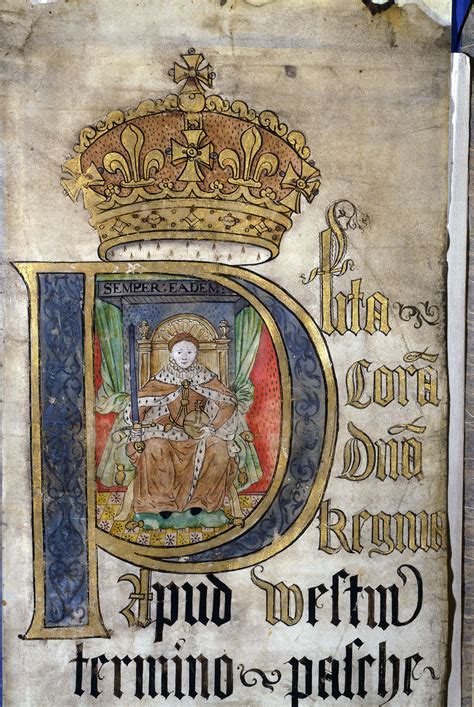 SEMPER: EADEM
Plita
Corā
Dnā
Regina
Apud westm'
termino pasche